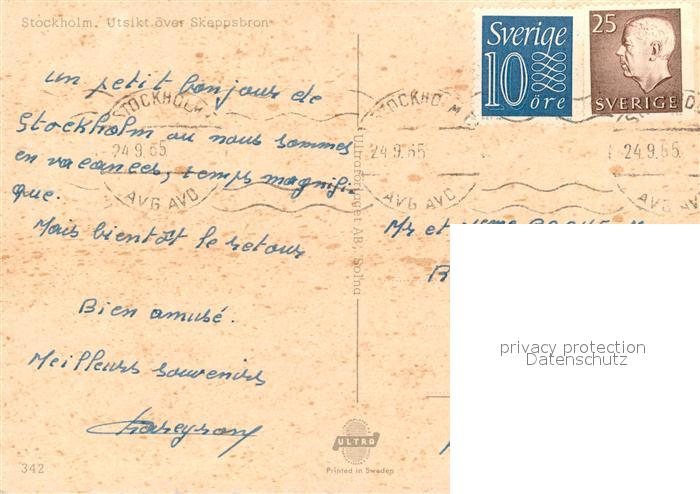 Stockholm. Utsikt över Skeppsbron
Sverige
10 öre
25
SVERIGE
STOCKHOLM
24.9.65
AVG AVD
STOCKHOLM
24.9.65
AVG AVD
24.9.65
AVG AVD
un petit bonjour de
Stockholm ou nous sommes
en vacances, temps magnifi
que.
Mais bientôt le retour
Bien amusé.
Meilleurs souvenirs
Mr et
Ultraförlaget AB, Solna
privacy protection
Datenschutz
ULTRA
Printed in Sweden
342